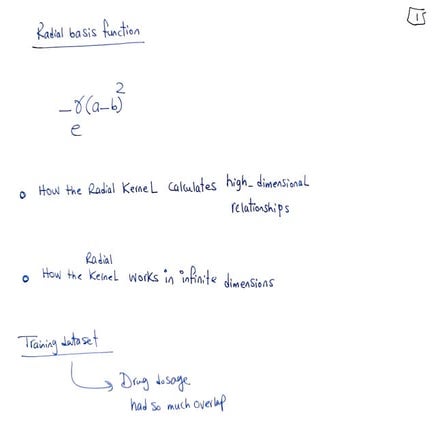 1
Radial basis function
e^-γ(a-b)^2
o How the Radial Kernel calculates high-dimensional
relationships
Radial
o How the Kernel works in infinite dimensions
Training dataset
Drug dosage
had so much overlap